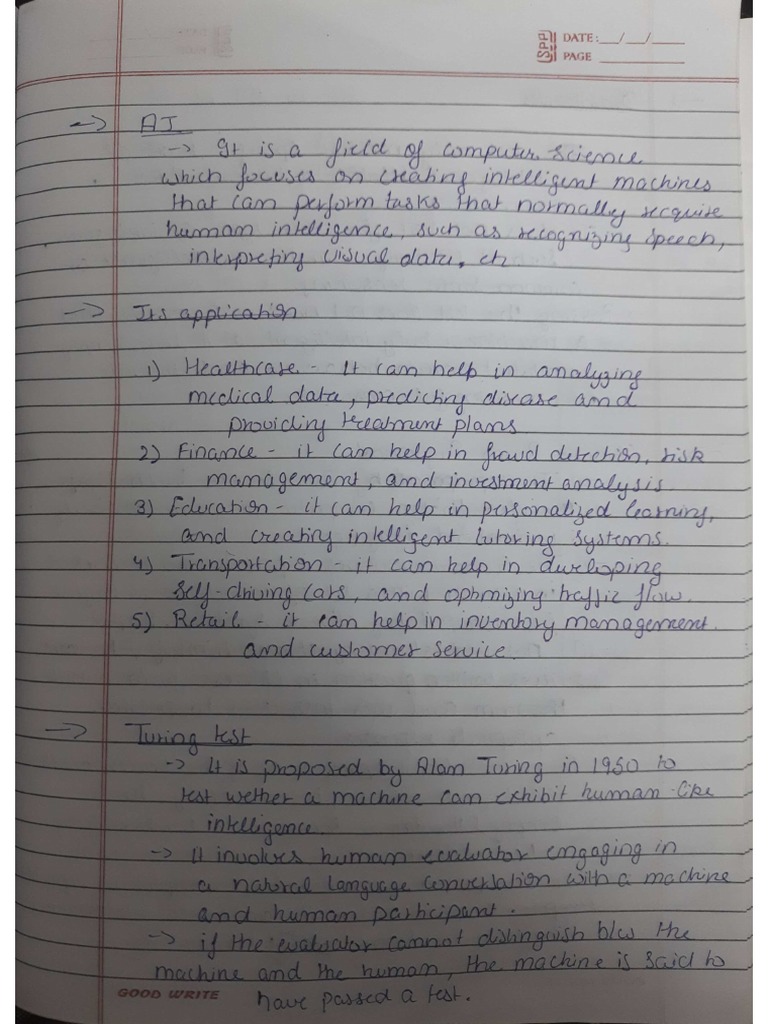 SPP DATE: __/__/____
PAGE ________
-> AI
-> It is a field of computer science
which focuses on creating intelligent machines
that can perform tasks that normally recquire
human intelligence, such as recognizing speech,
interpreting visual data, etc
-> Its application
1) Healthcare - It can help in analyzing
medical data, predicting disease and
providing treatment plans
2) Finance - it can help in fraud detection, risk
management, and investment analysis.
3) Education - it can help in personalized learning,
and creating intelligent tutoring systems.
4) Transportation - it can help in developing
self-driving cars, and optimizing traffic flow.
5) Retail - it can help in inventory management.
and customer service.
-> Turing test
-> It is proposed by Alan Turing in 1950 to
test wether a machine can exhibit human-like
intelligence.
-> It involves human evaluator engaging in
a natural language conversation with a machine
and human participant.
-> if the evaluator cannot distinguish b/w the
machine and the human, the machine is said to
have passed a test.
GOOD WRITE